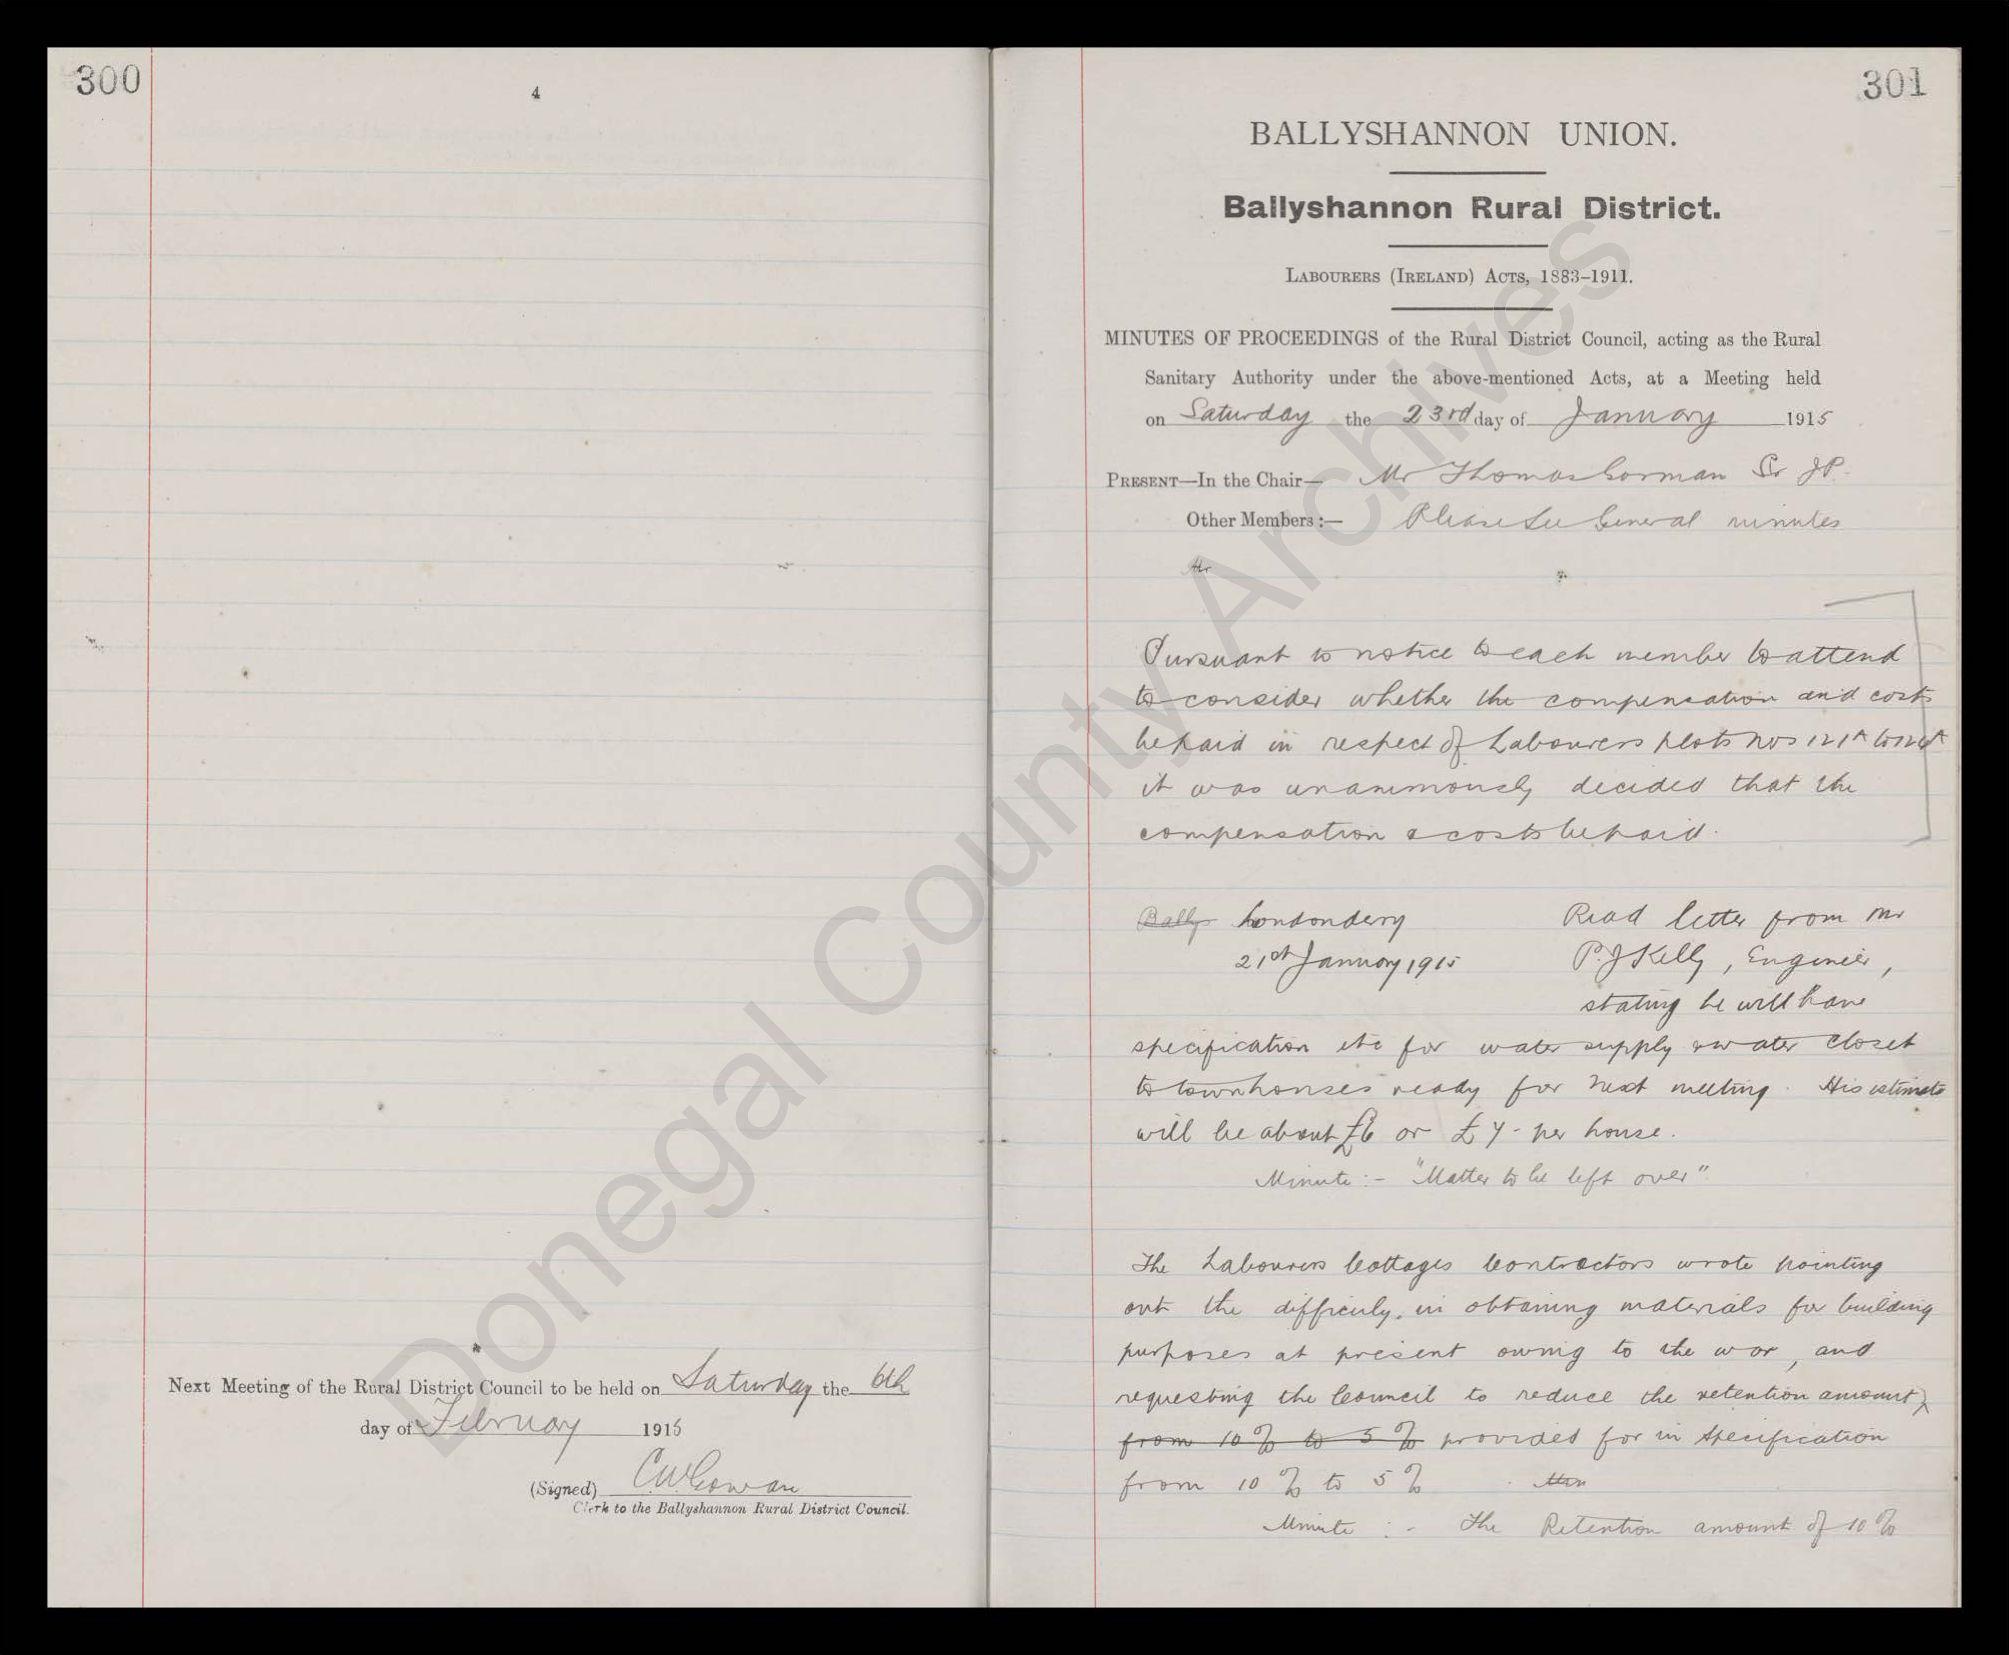 300
4
Next Meeting of the Rural District Council to be held on Saturday the 6th
day of February 1915
(Signed) CWGowan
Clerk to the Ballyshannon Rural District Council.
301
BALLYSHANNON UNION.
Ballyshannon Rural District.
LABOURERS (IRELAND) ACTS, 1883–1911.
MINUTES OF PROCEEDINGS of the Rural District Council, acting as the Rural
Sanitary Authority under the above-mentioned Acts, at a Meeting held
on Saturday the 23rd day of January 1915
PRESENT—In the Chair— Mr Thomas Gorman Sr JP.
Other Members :— Please See General minutes
Mr
Pursuant to notice to each member to attend
to consider whether the compensation and costs
be paid in respect of Labourers plots nos 121A to
it was unanimously decided that the
compensation & costs be paid.
Bally Londonderry
21st January 1915
Read letter from Mr
P.J Kelly, Engineer,
stating he will have
specification etc for water supply & water closet
to townhouses ready for next meeting. His estimate
will be about £6 or £7- per house.
Minute :- "Matter to be left over"
The Labourers Cottages Contractors wrote pointing
out the difficuly, in obtaining materials for building
purposes at present owing to the war, and
requesting the Council to reduce the retention amount,
from 10% to 5% provided for in Specification
from 10% to 5% Min
Minute :- The Retention amount of 10%
Donegal County Archives